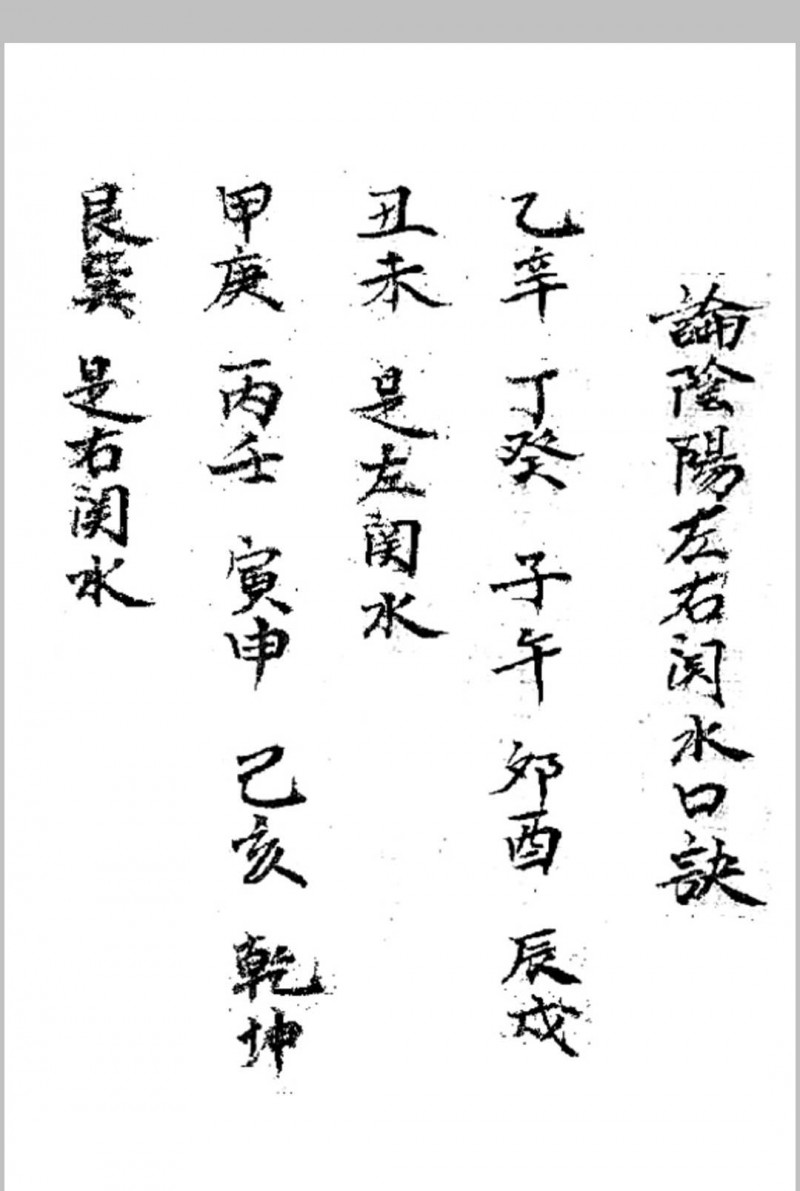 論陰陽左右関水口訣
乙辛 丁癸 子午 卯酉 辰戌
丑未 是左関水
甲庚 丙壬 寅申 己亥 乾坤
艮巽 是右関水